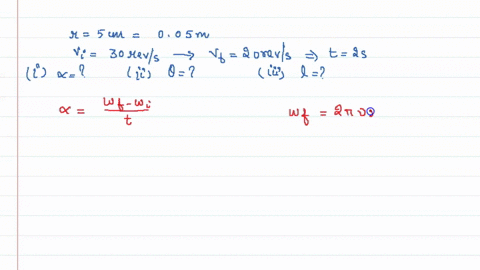 r = 5 cm = 0.05m
νi = 30 rev/s → νf = 20 rev/s ⇒ t = 2s
(i) α = ? (ii) θ = ? (iii) l = ?
α = (ωf - ωi) / t ωf = 2π ν